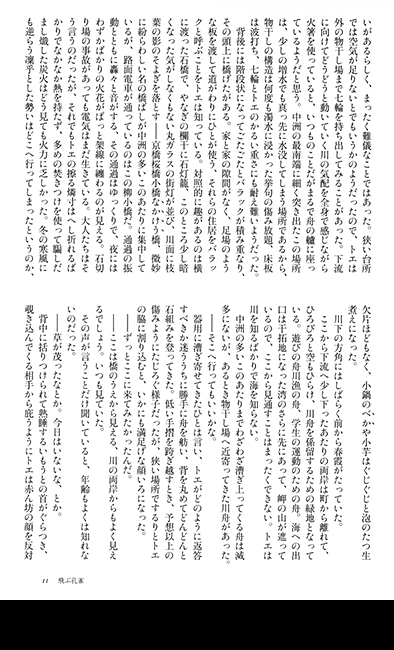 いがあるらしく、まったく難儀なことではあった。狭い台所
では空気が足りないとでもいうのかのようだったので、トエは
外の物干し場まで七輪を持ち出してみることがあった。下流
に向けてどうどうと動いていく川の気配を全身で感じながら
火箸を使っていると、いつものことだがまるで舟の艫に座っ
ているようだと思う。中洲の最南端に細く突き出たこの場所
は、少しの増水でも真っ先に水没してしまう場所であるから、
物干しの構造は何度も濁水に浸かった挙句の傷み放題、床板
は波打ち、七輪とトエのかるい重さにも耐え難いようだった。
背後には階段状になってごたごたとバラックが積み重なり、
その頭上に橋げたがある。家と家の隙間がなく、足場のよう
な板を渡して道がわりにひとが使う、それらの住居をバラッ
クと呼ぶことをトエは知っている。対照的に趣があるのは横
に渡った石橋で、やなぎの欄干に石灯籠、このところ少し暗
くなった気がしなくもない丸ガラスの街灯が並び、川面に枝
葉の影のそよぎを落とす――京橋桜橋小橋なかけう橋、微妙
に紛らわしい名の橋ばしが中洲の多いこのあたりに集中して
いるが、路面電車が通っているのはこの柳小橋だ。通過の振
動とともに轟々と音がする、その通過はゆっくりで、夜には
わずかばかりの火花がぱっと架線に纏わるのが見える。石切
り場の事故があっても電気はまだ生きている。大人たちはそ
う言うのだったが、それでもトエの擦る燐寸はへし折れるば
かりでなかなか熱を持たず、多めの焚きつけを使って騙しだ
まし熾した炭火はどう見ても火力に乏しかった。冬の寒風に
も逆らう凜乎とした勢いはどこへ行ってしまったというのか、
欠片ほどもなく、小鍋のべかや小芋はぐじぐじと泡のたつ生
煮えになった。
川下の方角にはしばらく前から春霞がたっていた。
ここから下流へ少し下ったあたりの両岸は町から離れて、
ひろびろと空もひらけ、川舟を係留するための緑地となって
いる。遊びの舟川漁の舟、学生の運動のための舟。海への出
口は干拓地になった湾のさらに先にあって、岬の山が遮って
いるので、ここから見通すことはまったくできない。トエは
川を知るばかりで海を知らない。
中洲の多いこのあたりまでわざわざ漕ぎ上ってくる舟は減
多にないが、あるとき物干し場へ近寄ってきた川舟があった。
――そこへ行ってもいいかな。
器用に漕ぎ寄せてきたひとは言い、トエがどのように返答
すべきか迷ううちに勝手に舟を舫い、背を丸めてどんどんと
石組みを登ってきた。低い手摺を跨ぎ越すとき、予想以上の
傷みようにたじろぐ様子だったが、狭い場所でするりとトエ
の脇に割り込むと、いかにも満足げな顔いろになった。
――ずっとここに来てみたかったんだ。
――ここは橋のうえからよく見える、川の両岸からもよく見え
るでしょう。いつも見ていた。
その声が言うことだけ聞いていると、年齢もよくは知れな
いのだった。
――草が茂ったなとか。今日はいないな、とか。
背中に括りつけられて熟睡するいもうとの首がぐらつき、
覗き込んでくる相手から庇うようにトエは赤ん坊の顔を反対
11 飛ぶ孔雀